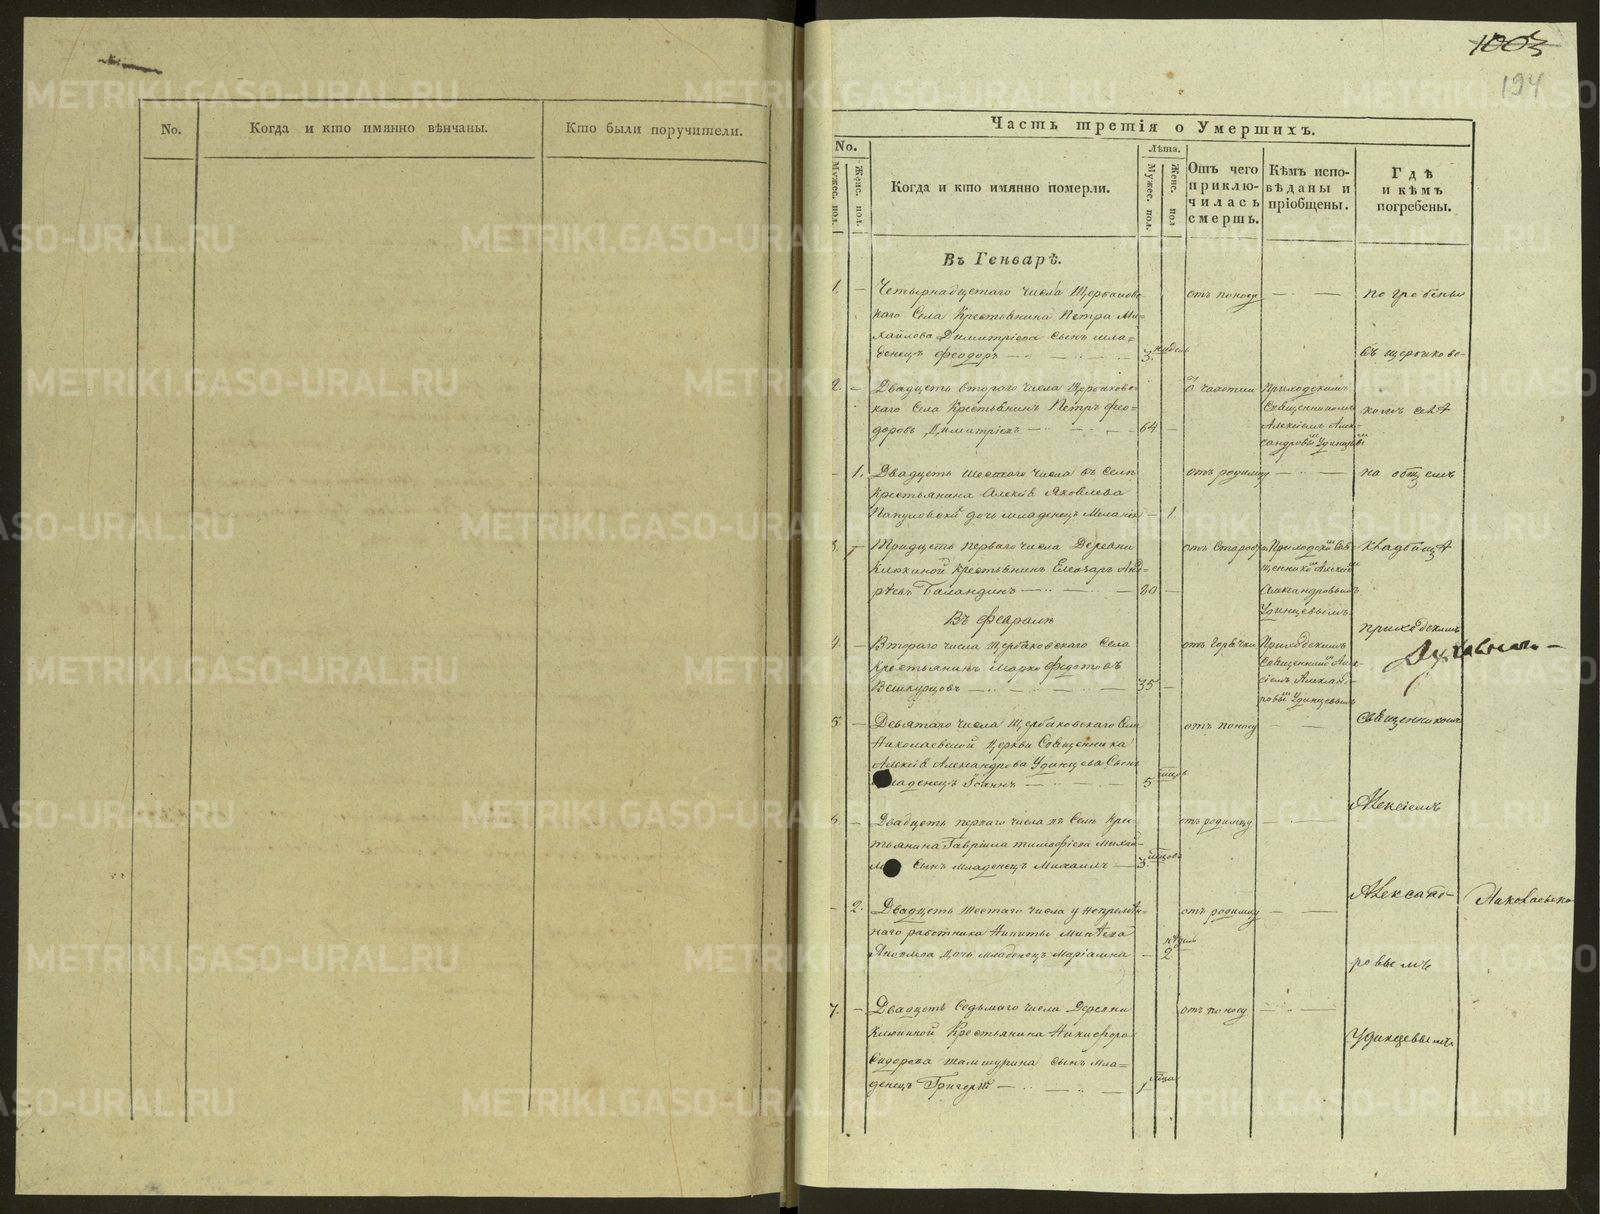 No.
Когда и кто имянно вѣнчаны.
Кто были поручители.
1003
194
Часть третія о Умершихъ.
No.
Мужес. пол.
Женс. пол.
Когда и кто имянно померли.
Лѣта.
Мужес. пол.
Женс. пол
Отъ чего приклю-чилась смерть.
Кѣмъ испо-вѣданы и пріобщены.
Гдѣ и кѣмъ погребены.
Въ Генварѣ.
1. — Четырнадцетаго числа Щербаковс-
каго Села Крестьянина Петра Ми=
хайлова Димитріева сынъ мла=
денецъ Феодоръ — 3 недель
отъ поносу
погребены
въ щербаково-
2. — Двадцеть втораго числа Щербаковс-
каго Села Крестьянинъ Петръ Фео=
доровъ Димитріевъ — 64 —
Приходскимъ
Священникомъ
Алексіемъ Алек-
сандровымъ Удинцевымъ
комъ селѣ
— 1. Двадцеть шестаго числа въ Селѣ
Крестьянина Алексія Яковлева
дочь младенецъ — 1.
отъ родимцу
на общемъ
3. — Тридцеть перваго числа Деревни
Клюкиной Крестьянинъ Елеозаръ Анд-
рѣевъ Баландинъ — 80 —
отъ старости
Приходскимъ Свя-
щенникомъ Алексіемъ
Александровымъ
Удинцевымъ
кладбищѣ
Въ Февралѣ
4. — Втораго числа Щербаковскаго Села
Крестьянинъ Марко Федотовъ
— 35 —
отъ Горячки
Приходскимъ
Священникомъ Алек-
сіемъ Александ-
ровымъ Удинцевымъ
приходскимъ
5. — Девятаго числа Щербаковскаго Села
Николаевской Церкви Священника
Алексія Александрова Удинцева Сынъ
младенецъ Іоаннъ — 5
отъ поносу
священникомъ
6. — Двадцеть перваго числа въ Селѣ Крес-
тьянина Гавріила Тимофіева
сынъ младенецъ Михаилъ — 3
отъ родимцу
Алексіемъ
— 2. Двадцеть шестаго числа у непремѣн-
наго работника Никиты
дочь младенецъ Маріамна — 2 недель
отъ родимцу
Александ-
Николаевско
ровымъ
7. — Двадцеть седьмаго числа Деревни
Клюкиной Крестьянина Никифора
Сидорова сынъ мла=
денецъ Григорій — 1
отъ поносу
Удинцевымъ
METRIKI.GASO-URAL.RU